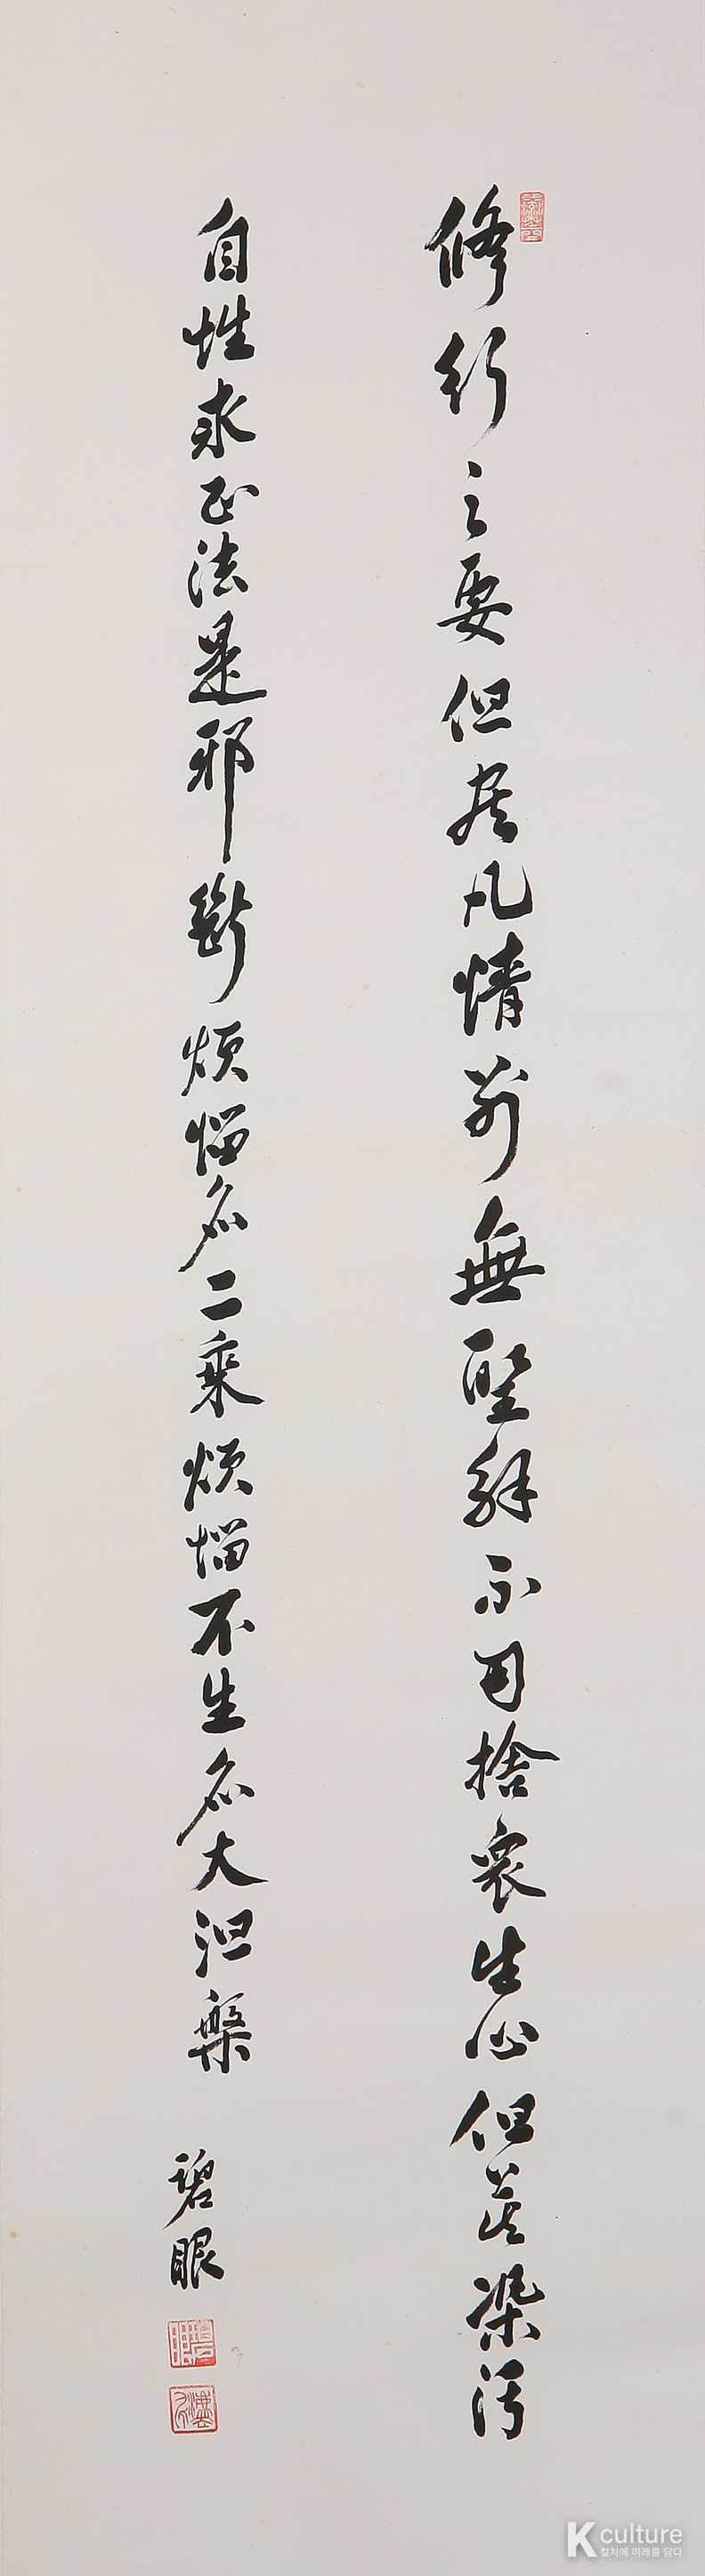 修行之要但盡凡情別無聖解不用捨衆生心但莫染污
自性求正法是邪斷煩惱名二乘煩惱不生名大涅槃
碧眼
K culture
컬처에 미래를 담다